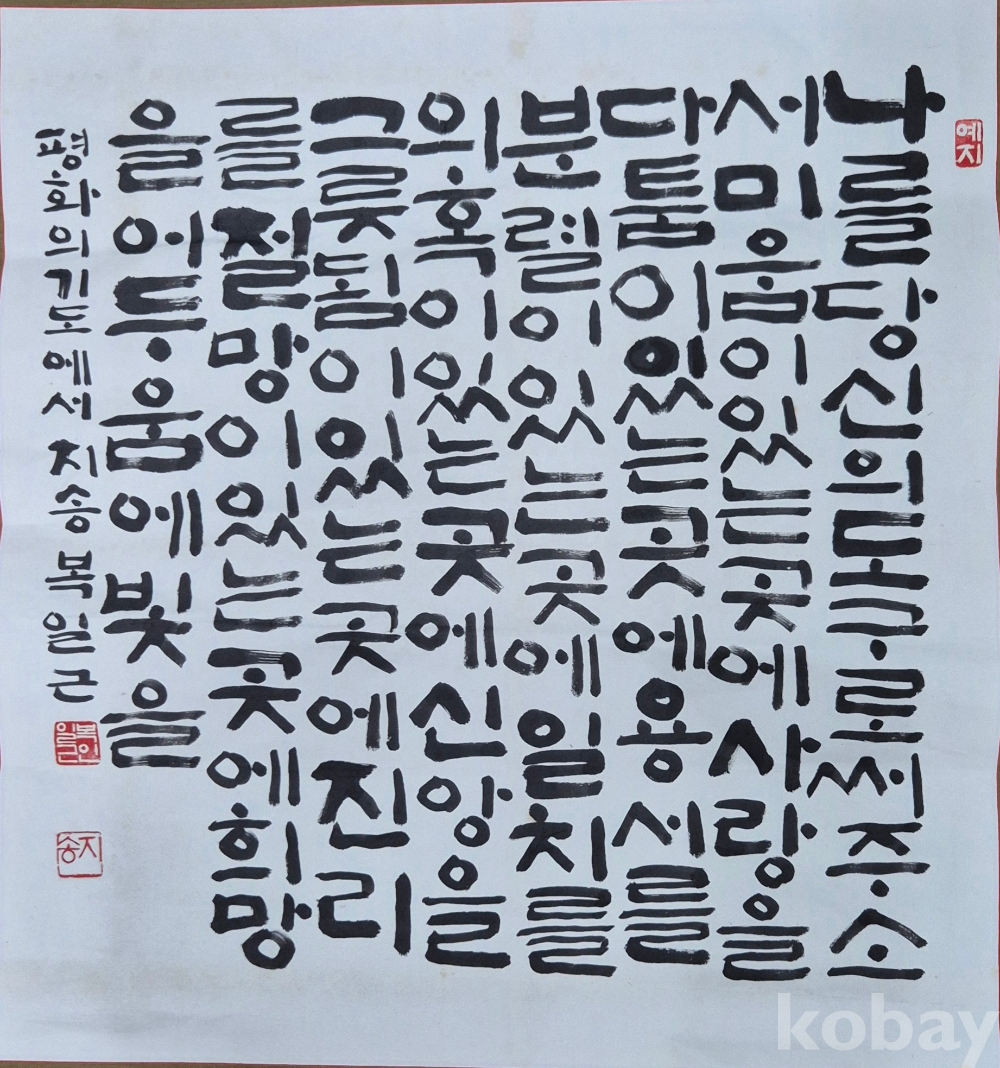 예지
나를당신의도구로써주소
서미움이있는곳에사랑을
다툼이있는곳에용서를
분렬이있는곳에일치를
의혹이있는곳에신앙을
그릇됨이있는곳에진리
를절망이있는곳에희망
을어두움에빛을
평화의기도에서 지송 목일근
목인일근
지송
kobay